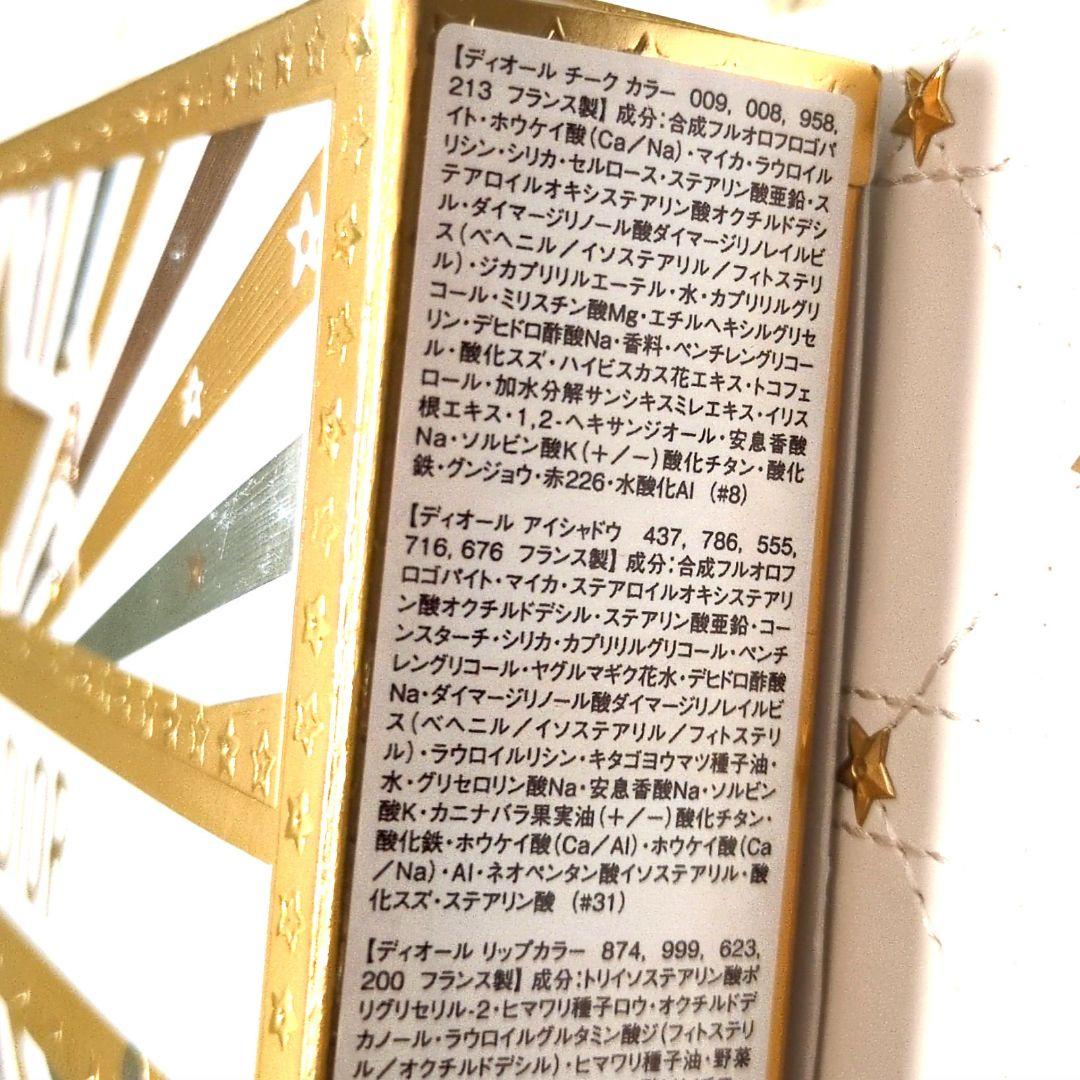 【ディオール チーク カラー 009, 008, 958,
213 フランス製】成分:合成フルオロフロゴパ
イト・ホウケイ酸(Ca/Na)・マイカ・ラウロイル
リシン・シリカ・セルロース・ステアリン酸亜鉛・ス
テアロイルオキシステアリン酸オクチルドデシ
ル・ダイマージリノール酸ダイマージリノレイルビ
ス(ベヘニル/イソステアリル/フィトステリ
ル)・ジカプリリルエーテル・水・カプリリルグリ
コール・ミリスチン酸Mg・エチルヘキシルグリセ
リン・デヒドロ酢酸Na・香料・ペンチレングリコー
ル・酸化スズ・ハイビスカス花エキス・トコフェ
ロール・加水分解サンシキスミレエキス・イリス
根エキス・1,2-ヘキサンジオール・安息香酸
Na・ソルビン酸K(+/-)酸化チタン・酸化
鉄・グンジョウ・赤226・水酸化Al (#8)
【ディオール アイシャドウ 437, 786, 555,
716, 676 フランス製】成分:合成フルオロフ
ロゴパイト・マイカ・ステアロイルオキシステアリ
ン酸オクチルドデシル・ステアリン酸亜鉛・コー
ンスターチ・シリカ・カプリリルグリコール・ペンチ
レングリコール・ヤグルマギク花水・デヒドロ酢酸
Na・ダイマージリノール酸ダイマージリノレイルビ
ス(ベヘニル/イソステアリル/フィトステリ
ル)・ラウロイルリシン・キタゴヨウマツ種子油・
水・グリセロリン酸Na・安息香酸Na・ソルビン
酸K・カニナバラ果実油(+/-)酸化チタン・
酸化鉄・ホウケイ酸(Ca/Al)・ホウケイ酸(Ca
/Na)・Al・ネオペンタン酸イソステアリル・酸
化スズ・ステアリン酸 (#31)
【ディオール リップカラー 874, 999, 623,
200 フランス製】成分:トリイソステアリン酸ポ
リグリセリル-2・ヒマワリ種子ロウ・オクチルドデ
カノール・ラウロイルグルタミン酸ジ(フィトステリ
ル/オクチルドデシル)・ヒマワリ種子油・野菜